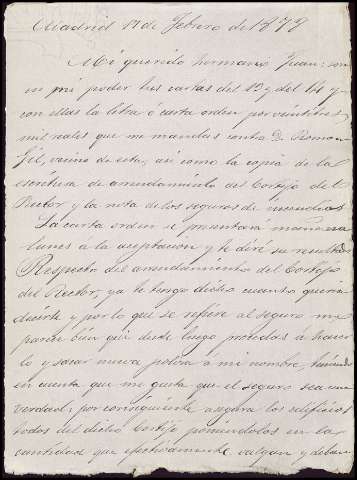 Madrid 17 de Febrero de 1878
Mi querido hermano Juan: son
en mi poder tus cartas del 12 y del 14 y
con ellas la letra ó carta orden por veintitres
mil reales que me mandas contra D. Ramon
Gil, vecino de esta, asi como la copia de la
escritura de arrendamiento del Cortijo del
Rector y la nota de los seguros de incendios
La carta orden se presentará mañana
lunes á la aceptacion y te diré su resultado
Respecto del arrendamiento del Cortijo
del Rector, ya te tengo dicho cuanto queria
decirte y por lo que se refiere al seguro me
parece bien que desde luego procedas á hacer
lo y sacar nueva poliza á mi nombre, teniendo
en cuenta que me gusta que el seguro sea una
verdad; por consiguiente asegura los edificios
todos del dicho Cortijo poniendolos en la
cantidad que efectivamente valgan y deban